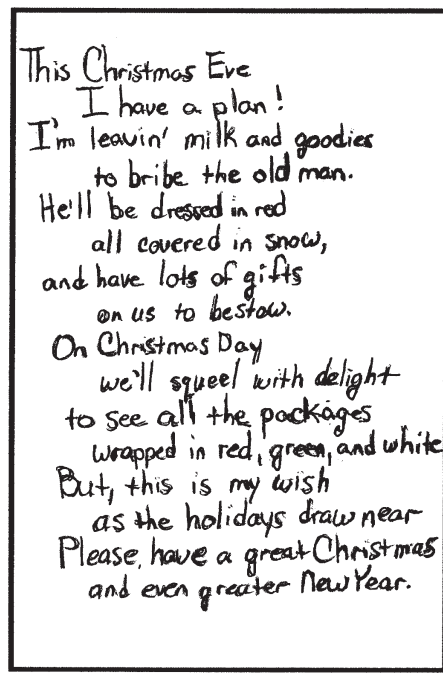 This Christmas Eve
I have a plan!
I'm leavin' milk and goodies
to bribe the old man.
He'll be dressed in red
all covered in snow,
and have lots of gifts
on us to bestow.
On Christmas Day
we'll squeel with delight
to see all the packages
wrapped in red, green, and white
But, this is my wish
as the holidays draw near
Please, have a great Christmas
and even greater New Year.